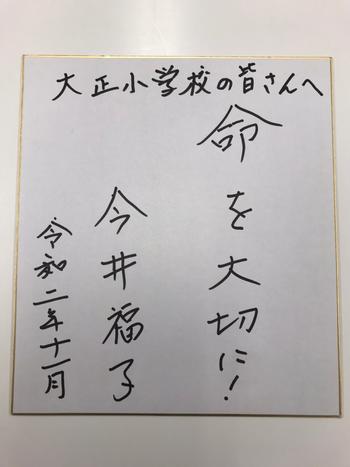 大正小学校の皆さんへ
命を大切に!
今井福子
令和二年十一月